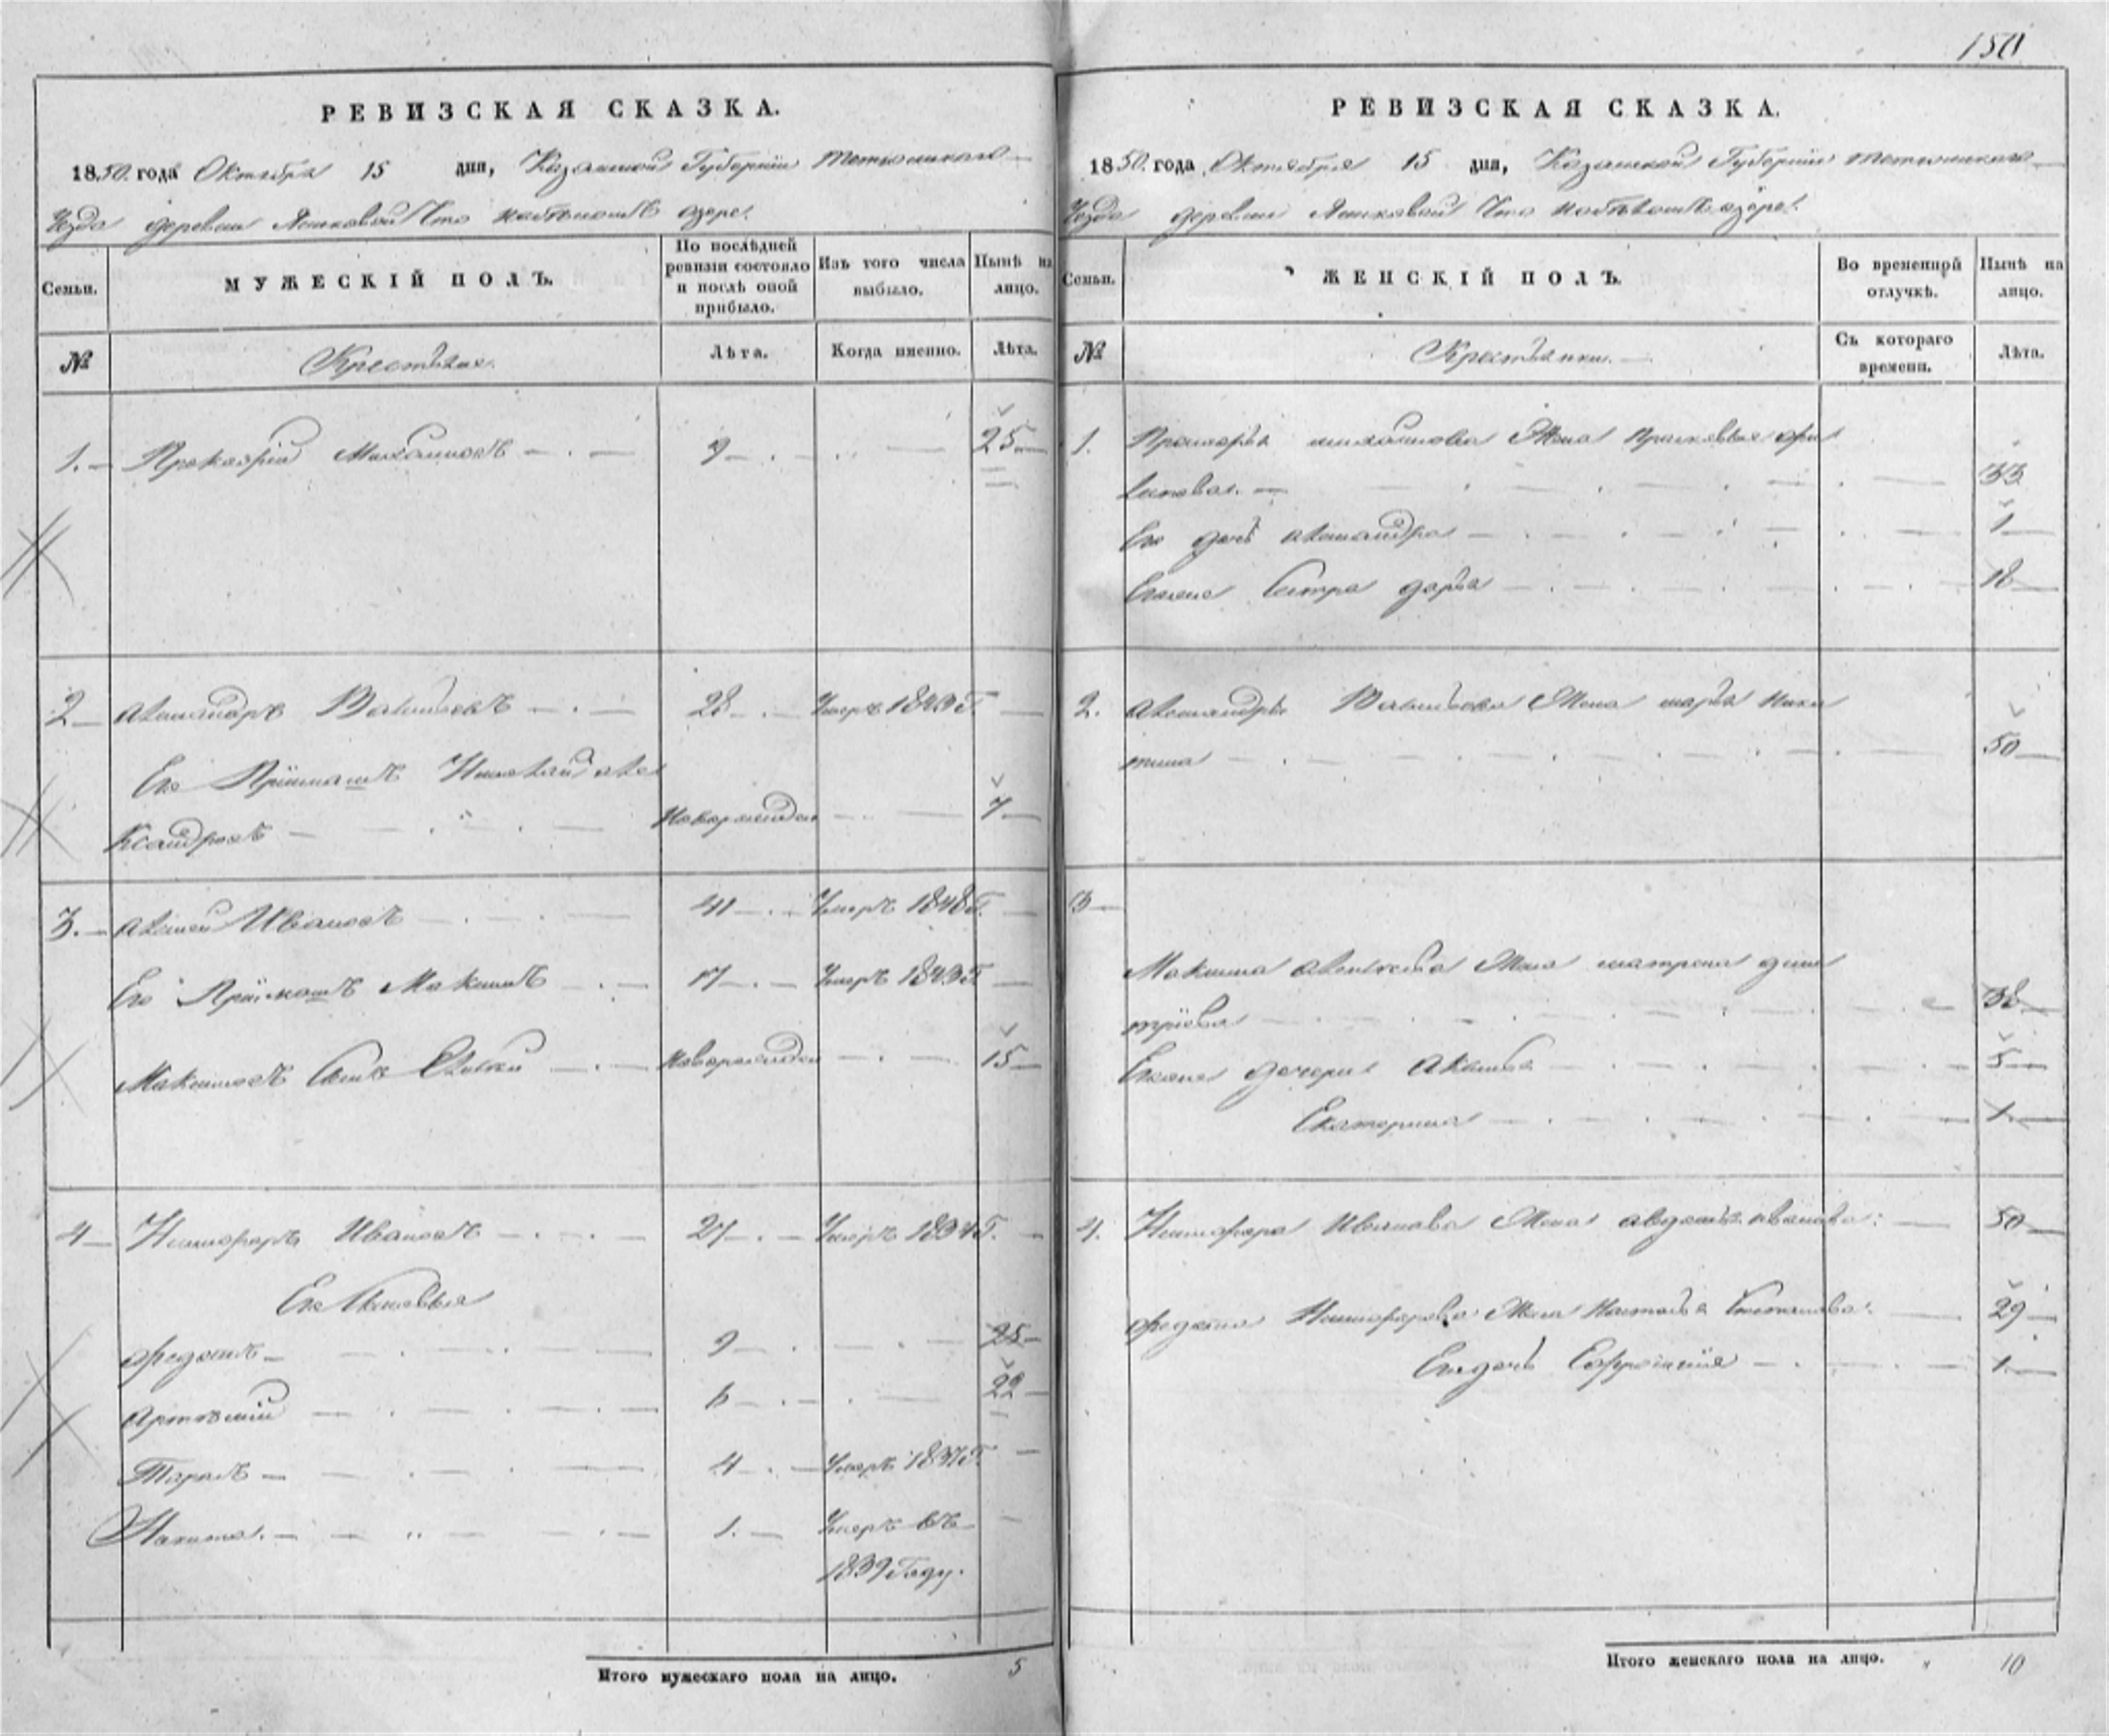 РЕВИЗСКАЯ СКАЗКА.
1850. года Октября 15 дня, Казанской Губернии Тетюшскаго
Уезда деревни
Семьи.
МУЖЕСКІЙ ПОЛЪ.
По послѣдней ревизіи состояло и послѣ оной прибыло.
Изъ того числа выбыло.
Нынѣ на лицо.
№
Крестьяне.
Лѣта.
Когда именно.
Лѣта.
1. Прокофій 9 25
2 Александръ Васильевъ 28 Умеръ 1849 Г.
Его Пріимышъ Николай Але
ксандровъ новорожденъ 7
3. Алексей Ивановъ 41 Умеръ 1848 Г.
Его Пріимышъ Максимъ 17 Умеръ 1849 Г
Максимовъ Сынъ новорожденъ 15
4 Никифоръ Ивановъ 27 Умеръ 1834 Г.
Его Сыновья
Федотъ 9 25
Артемій 6 22
Тарасъ 4 Умеръ 1837 Г.
Никита. 1. Умеръ въ
1839 Году.
Итого мужескаго пола на лицо. 5
150
РЕВИЗСКАЯ СКАЗКА.
1850. года Октября 15 дня, Казанской Губернии Тетюшскаго
Уезда деревни
Семьи.
ЖЕНСКІЙ ПОЛЪ.
Во временной отлучкѣ.
Нынѣ на лицо.
№
Крестьянки.
Съ котораго времени.
Лѣта.
1. Жена Прасковья Фи
липова. 33
Его дочь Александра 1
Сестра дарья 18
2. Александра Васильева Жена марья Ники
тина 50
3
Максима Алексеева Жена матрена дми
тріева 38
дочери Акулина 5
Екатерина 1.
4. Никифора Иванова Жена авдотья иванова. 50
Федота Никифорова Жена Настасья Степанова. 29
дочь Ефросинія 1.
Итого женскаго пола на лицо. 10